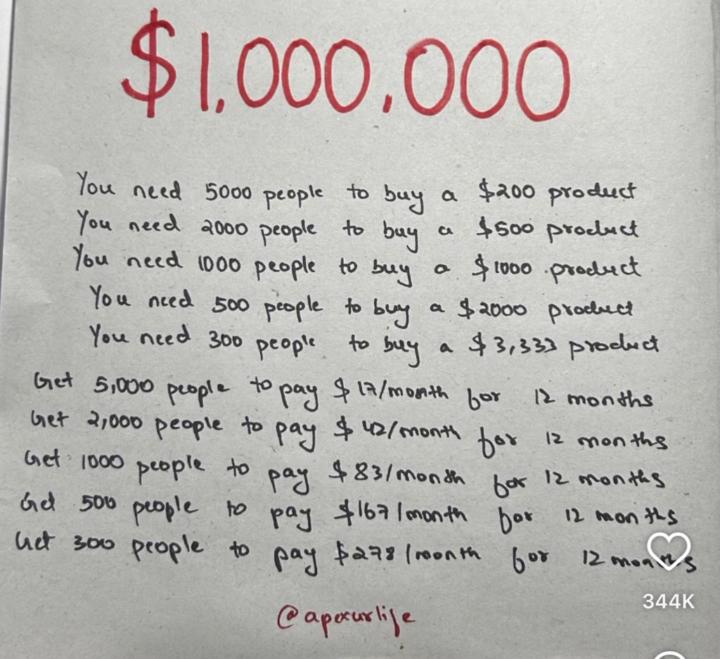 $1,000,000
You need 5000 people to buy a $200 product
You need 2000 people to buy a $500 product
You need 1000 people to buy a $1000 product
You need 500 people to buy a $2000 product
You need 300 people to buy a $3,333 product
Get 5,000 people to pay $17/month for 12 months
Get 2,000 people to pay $42/month for 12 months
Get 1000 people to pay $83/month for 12 months
Get 500 people to pay $167/month for 12 months
Get 300 people to pay $278/month for 12 months
344K
@apexurlife